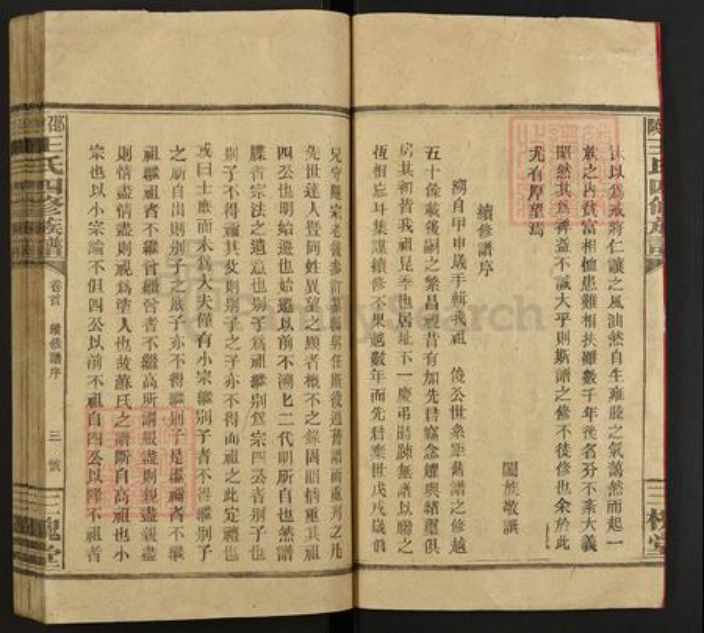 以爲戒將仁讓之風油然自生雍睦之氣藹然而起一
族之內貧富相恤患難相扶雖數千年後名分不紊大義
昭然其爲裨益不誠大乎則斯譜之修不徒修也余於此
尤有厚望焉
闔族敬譔
續修譜序
溯自甲申歲手輯我祖 俊公世系舊譜之修越
五十餘載後嗣之繁昌視昔有加先君 念 與緒 俱
房其初皆我祖昆季也居址不一慶弔時疎無譜以聯之
恆相忘 集謀續修不果越數年而先君棄世戊戌歲
兄 宗老 任斯役 舊譜而重 之凡
先世達人暨同姓異望之顯者概不之錄固 情重其祖
四公也明始遷也始遷以前不溯 二代明所自也然譜
牒者宗法之遺意也別子爲祖繼別爲宗四公者別子也
別子不得禰其父則別子之子亦不得而祖之此定禮也
或曰士庶而未爲大夫僅有小宗繼別子者不得繼別子
之所自出則別子之庶子亦不得繼別子是 禰者不繼
祖繼祖者不繼曾繼曾者不繼高所謂服盡則親盡親盡
則情盡情盡則視爲塗人也故蘇氏之譜斷自高祖也小
宗也以小宗論不但四公以前不祖自四公以降不祖者
邵 王氏四修族譜
卷首 續修譜序
三號
三槐堂
王氏四修族譜
三槐堂
FamilySearch